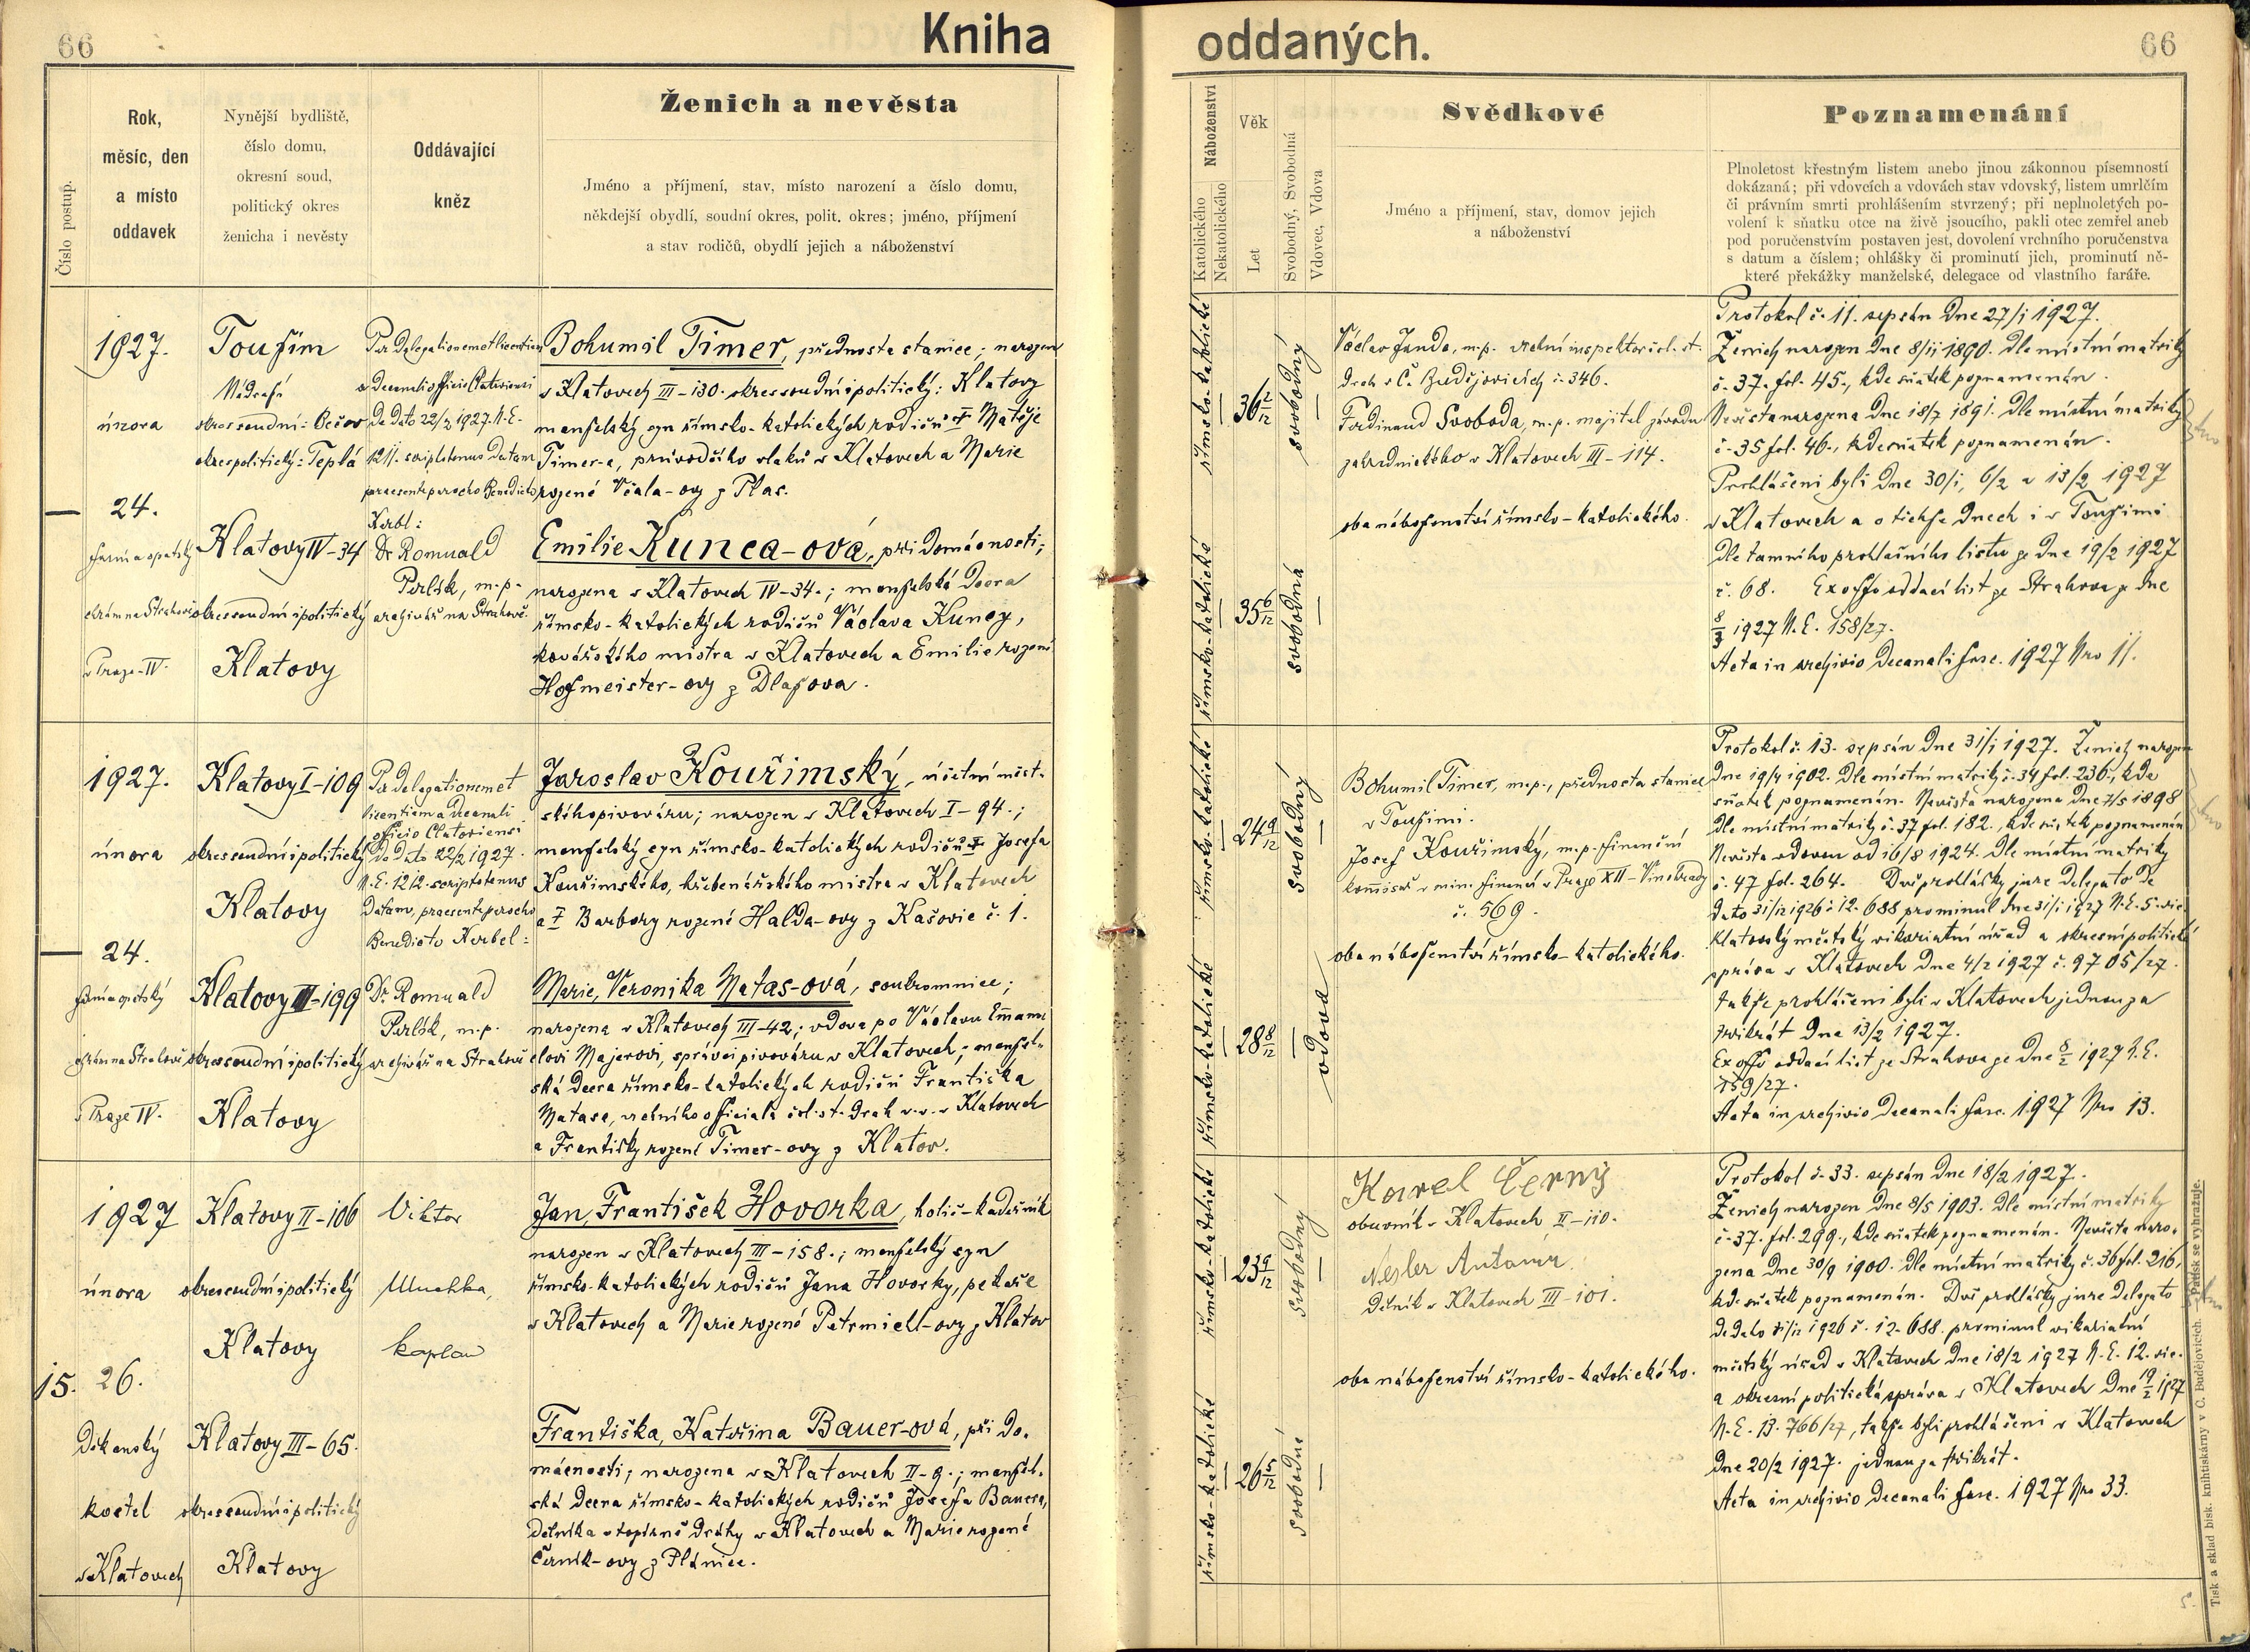 66
Kniha
Číslo postup.
Rok,
měsíc, den
a místo
oddavek
Nynější bydliště,
číslo domu,
okresní soud,
politický okres
ženicha i nevěsty
Oddávající
kněz
Ženich a nevěsta
Jméno a příjmení, stav, místo narození a číslo domu,
někdejší obydlí, soudní okres, polit. okres; jméno, příjmení
a stav rodičů, obydlí jejich a náboženství
1927.
února
24.
farní a opatský
chrám na Strahově
v Praze-IV.
Toužim
Nádraží
okres soudní: Bečov
okres politický: Teplá
Klatovy IV-34
okres soudní i politický
Klatovy
Per delegationem et licentiam
a decanali officio Clatoviensi
De Dato 22/2 1927. N.E.
1211. scriptotenus datam
praesente parocho Benedicto
Kerbl:
Dr Romuald
Perlík, m.p.
archivář na Strahově.
Bohumil Timer, přednosta stanice; narozen
v Klatovech III-130. okres soudní i politický: Klatovy
manželský syn římsko-katolických rodičů † Matěje
Timer-a, průvodčího vlaků v Klatovech a Marie
rozené Včala-ovy z Plas.
Emilie Kunca-ová, při domácnosti;
narozena v Klatovech IV-34.; manželská dcera
římsko-katolických rodičů Václava Kuncy,
kovářského mistra v Klatovech a Emilie rozené
Hofmeister-ovy z Dlažova.
1927.
února
24.
farní a opatský
chrám na Strahově
v Praze IV.
Klatovy I-109
okres soudní i politický
Klatovy
Klatovy III-199
okres soudní i politický
Klatovy
Per delegationem et
licentiam a decanali
officio Clatoviensi
De Dato 22/2 1927.
N.E. 1212. scriptotenus
datam, praesente parocho
Benedicto Kerbel:
Dr Romuald
Perlík, m.p.
archivář na Strahově
Jaroslav Kouřimský, účetní měst-
ského pivováru; narozen v Klatovech I-94.;
manželský syn římsko-katolických rodičů † Josefa
Kouřimského, hřebenářského mistra v Klatovech
a † Barbory rozené Halda-ovy z Kašovic č. 1.
Marie, Veronika Matas-ová, soukromnice;
narozena v Klatovech III-42; vdova po Václavu Emanu
elovi Majerovi, správci pivováru v Klatovech; manžel-
ská dcera římsko-katolických rodičů Františka
Matasa, vrchního officiala čsl. st. drah v.v. v Klatovech
a Františky rozené Timer-ovy z Klatov.
15.
1927
února
26.
Děkanský
kostel
v Klatovech
Klatovy II-106
okres soudní i politický
Klatovy
Klatovy III-65.
okres soudní i politický
Klatovy
Viktor
kaplan
Jan, František Hovorka, holič-kadeřník
narozen v Klatovech III-158.; manželský syn
římsko-katolických rodičů Jana Hovorky, pekaře
v Klatovech a Marie rozené Petrmichl-ovy z Klatov
Františka, Kateřina Bauer-ová, při do-
mácnosti; narozena v Klatovech II-9.; manžel-
ská dcera římsko-katolických rodičů Josefa Bauera,
dělníka v topírně dráhy v Klatovech a Marie rozené
Černík-ovy z Plánice.
oddaných.
66
Náboženství
Katolického
Nekatolického
Věk
Let
Svobodný, Svobodná
Vdovec, Vdova
Svědkové
Jméno a příjmení, stav, domov jejich
a náboženství
Poznamenání
Plnoletost křestným listem anebo jinou zákonnou písemností
dokázaná; při vdovcích a vdovách stav vdovský, listem umrlčím
či právním smrti prohlášením stvrzený; při neplnoletých po-
volení k sňatku otce na živě jsoucího, pakli otec zemřel aneb
pod poručenstvím postaven jest, dovolení vrchního poručenstva
s datum a číslem; ohlášky či prominutí jich, prominutí ně-
které překážky manželské, delegace od vlastního faráře.
římsko-katolické
36 2/12
svobodný
římsko-katolické
35 6/12
svobodná
Václav Janda, m.p. vrchní inspektor čsl. st.
drah v Č. Budějovicích č. 346.
Ferdinand Svoboda, m.p. majitel závodu
zahradnického v Klatovech III-114.
oba náboženství římsko-katolického.
Protokol č. 11. sepsán dne 27/1 1927.
Ženich narozen dne 8/12 1890. dle místní matriky
č. 37. fol. 45., kde sňatek poznamenán.
Nevěsta narozena dne 18/7 1891. dle místní matriky
č. 35 fol. 46., kde sňatek poznamenán.
Prohlášeni byli dne 30/1, 6/2 a 13/2 1927
v Klatovech a o těchže dnech i v Toužimi
dle tamního prohlašního listu ze dne 19/2 1927
č. 68. Ex offo oddací list ze Strahova ze dne
8/3 1927 N.E. 158/27.
Acta in archivio decanali fasc. 1927 Nro 11.
římsko-katolické
24 9/12
svobodný
římsko-katolické
28 8/12
vdova
Bohumil Timer, m.p., přednosta stanice
v Toužimi.
Josef Kouřimský, m.p. finanční
komisař v min. financí v Praze XII-Vinohrady
č. 569.
oba náboženství římsko-katolického.
Protokol č. 13. sepsán dne 31/1 1927. Ženich narozen
dne 19/4 1902. dle místní matriky č. 34 fol. 236., kde
sňatek poznamenán. Nevěsta narozena dne 7/5 1898
dle místní matriky č. 37 fol. 182., kde sňatek poznamenán
Nevěsta vdovou od 16/8 1924. dle místní matriky
č. 47 fol. 264. Dvě prohlášky jure delegato de
dato 31/12 1926 č. 12.688 prominul dne 31/1 1927 N.E. 5. vic.
Klatovský městský vikariatní úřad a okresní politická
správa v Klatovech dne 4/2 1927 č. 9705/27.
takže prohlášeni byli v Klatovech jednou za
třikrát dne 13/2 1927.
Ex offo oddací list ze Strahova ze dne 8/2 1927 N.E.
159/27.
Acta in archivio decanali fasc. 1927 Nro 13.
římsko-katolické
23 9/12
svobodný
římsko-katolické
26 5/12
svobodná
Karel Černý
obuvník v Klatovech II-110.
Nesler Antonín
dělník v Klatovech III-101.
oba náboženství římsko-katolického.
Protokol č. 33. sepsán dne 18/2 1927.
Ženich narozen dne 8/5 1903. dle místní matriky
č. 37. fol. 299., kde sňatek poznamenán. Nevěsta naro-
zena dne 30/9 1900. dle místní matriky č. 36 fol. 216,
kde sňatek poznamenán. Dvě prohlášky jure delegato
de dato 31/12 1926 č. 12.688. prominul vikariatní
městský úřad v Klatovech dne 18/2 1927 N.E. 12. vic.
a okresní politická správa v Klatovech dne 19/2 1927
N.E. 13.766/27, takže byli prohlášeni v Klatovech
dne 20/2 1927. jednou za třikrát.
Acta in archivio decanali fasc. 1927 Nro 33.
Tisk a sklad bisk. knihtiskárny v Č. Budějovicích. Patisk se vyhražuje.